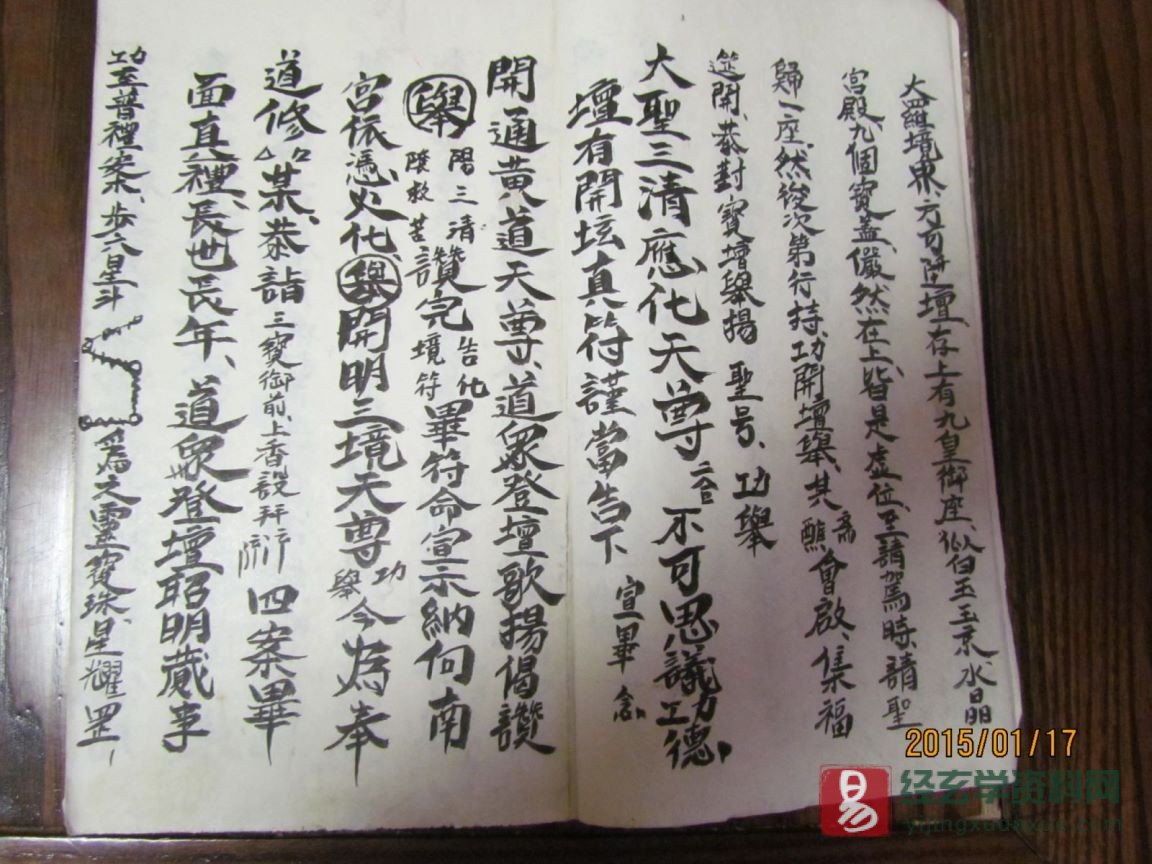 大羅境界、方可陞壇、存上有九皇御座、似白玉玉京水晶
宮殿、九個寳蓋、儼然在上、皆是虛位、至請駕時、請聖
歸一座、然後次第行持、功開壇舉、其齋醮會啟、集福
筵開、恭對寳壇舉揚 聖号、功舉
大聖三清應化天尊 二合 不可思議功德、
壇有開坛真符謹當告下 宣畢念
開通黃道天尊、道眾登壇歌揚偈讚
舉 陽三清 陵救苦 讚完 告化境符 畢符命宣示納向南
宮依憑火化、舉開明三境天尊 功舉 今為奉
道修某、恭詣 三寳御前、上香設拜 四案畢
面真禮、長世長年、道眾登壇昭明蕆事
功至普禮案、步六星斗 為之靈寳珠、星耀罡
2015/01/17
易
经玄学资料网
yijingxuda.xue.com